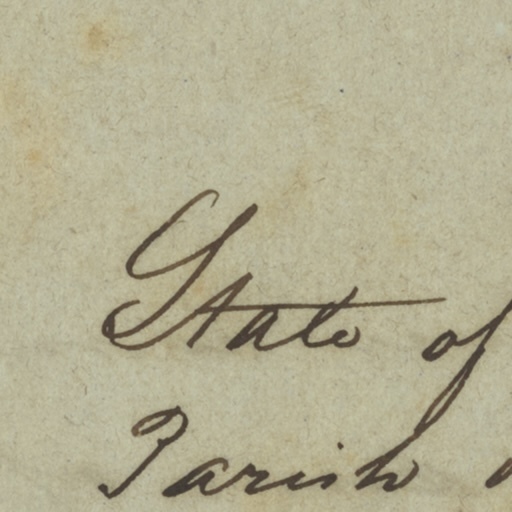 State of
Parish